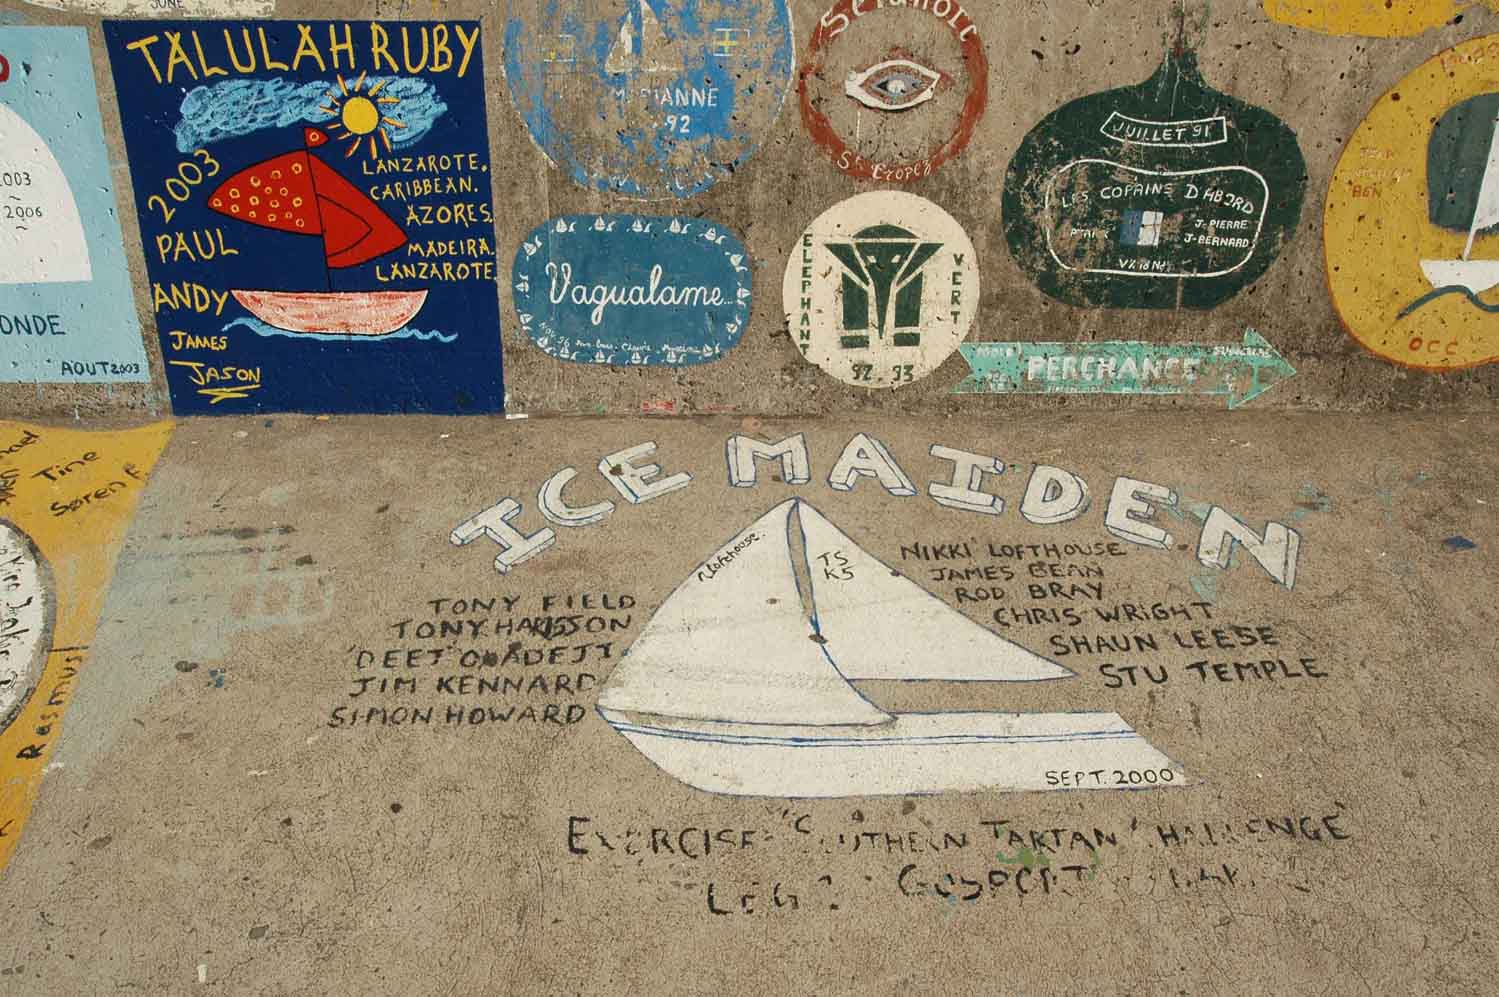 JUNE
TALULAH RUBY
2003
PAUL
ANDY
JAMES
JASON
LANZAROTE.
CARIBBEAN.
AZORES.
MADEIRA.
LANZAROTE.
2003
~
2006
~
ONDE
AOUT 2003
92
St Tropez
Vagualame...
ELEPHANT
VERT
92-93
JUILLET 91
LES COPAINS D'ABORD
J-PIERRE
J-BERNARD
PERCHANCE
BEN
OCC
Tine
Søren
Rasmus
ICE MAIDEN
N Lofthouse.
TS
K5
TONY FIELD
TONY HARISSON
JIM KENNARD
SIMON HOWARD
NIKKI LOFTHOUSE
JAMES BEAN
ROD BRAY
CHRIS WRIGHT
SHAUN LEESE
STU TEMPLE
SEPT. 2000
EXERCISE "SOUTHERN TARTAN CHALLENGE
LEG GOSPORT